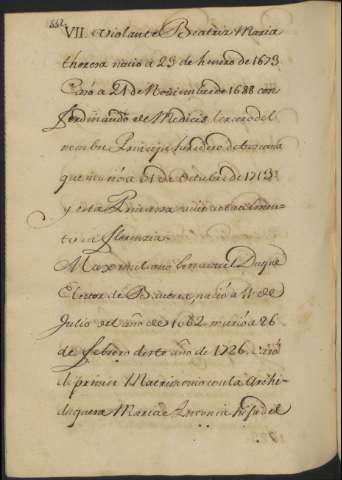 552.
VII. Violante Beatriz Maria
theresa nacio a 23 de henero de 1673
Casó a 21 de Noviembre de 1688 con
Ferdinando de Medicis tercero del
nombre Principe heredero de toscana
que murió a 31 de Octubre de 1713
y esta Princesa vive actualmen-
te en Florencia.
Maximiliano Emanuel Duque
Elector de Baviera, nació a 11 de
Julio del año de 1662 murió a 26
de febrero deste año de 1726. Casó
de primer Matrimonio con la Archi-
duquesa Maria Antonia hija del